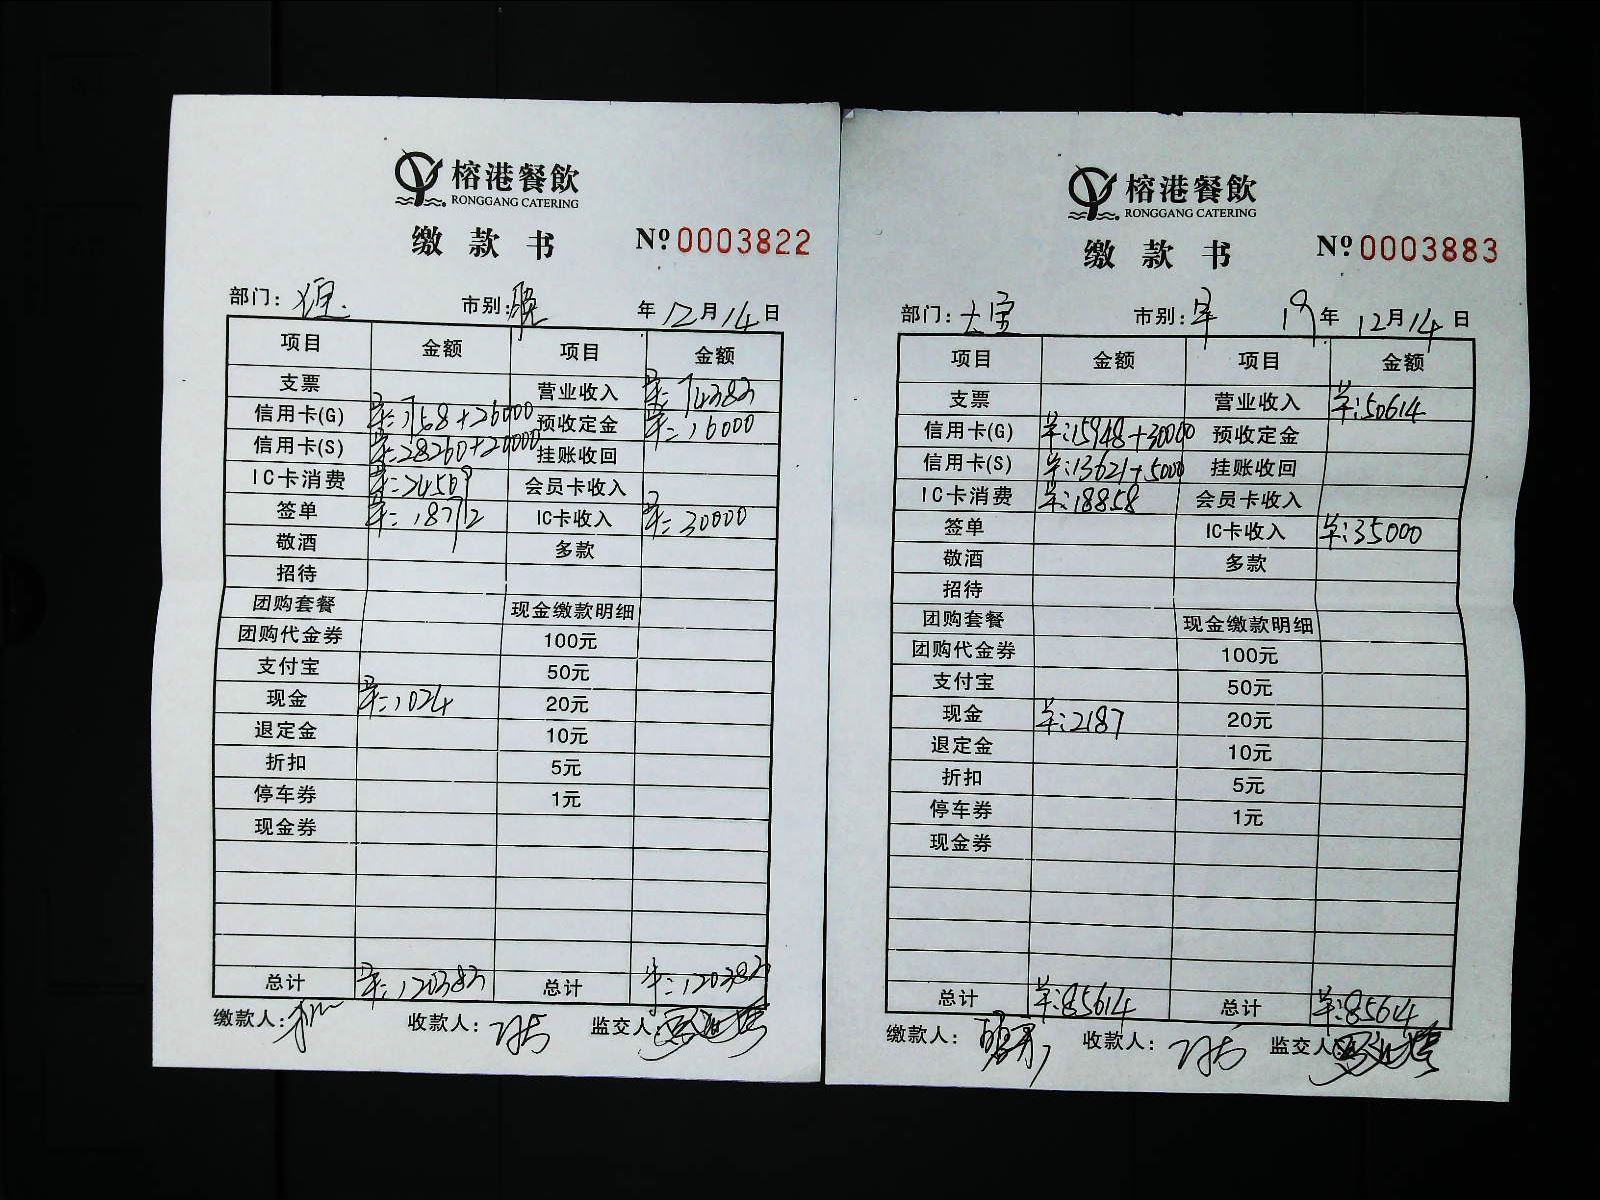 榕港餐飲
RONGGANG CATERING
缴款书 Nº 0003822
部门: 市别:晚 年12月14日
项目 金额 项目 金额
支票 营业收入 74383
信用卡(G) 1758+26000 预收定金 16000
信用卡(S) 28260+20000 挂账收回
IC卡消费 24569 会员卡收入
签单 18772 IC卡收入 30000
敬酒 多款
招待
团购套餐 现金缴款明细
团购代金券 100元
支付宝 50元
现金 1024 20元
退定金 10元
折扣 5元
停车券 1元
现金券
总计 120383 总计 120383
缴款人: 收款人: 监交人:
榕港餐飲
RONGGANG CATERING
缴款书 Nº 0003883
部门:大宝 市别:早 19年12月14日
项目 金额 项目 金额
支票 营业收入 50614
信用卡(G) 15948+30000 预收定金
信用卡(S) 13621+5000 挂账收回
IC卡消费 18858 会员卡收入
签单 IC卡收入 35000
敬酒 多款
招待
团购套餐 现金缴款明细
团购代金券 100元
支付宝 50元
现金 2187 20元
退定金 10元
折扣 5元
停车券 1元
现金券
总计 85614 总计 85614
缴款人: 收款人: 监交人: